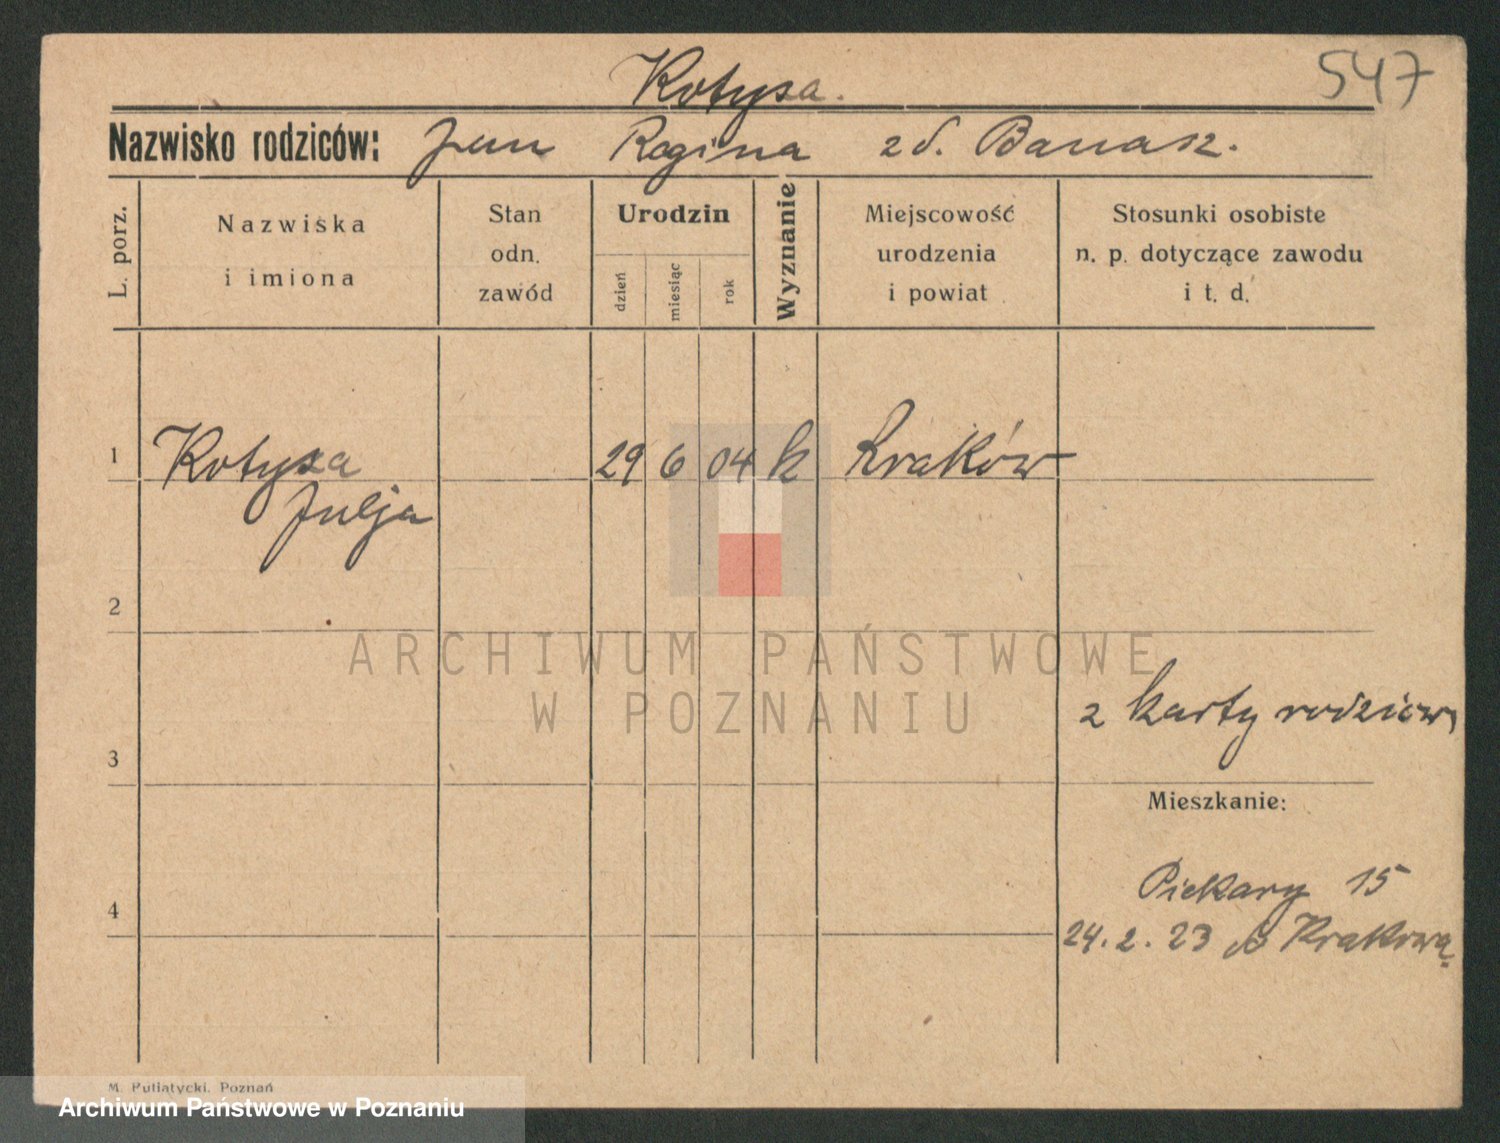 547
Kotysa.
Nazwisko rodziców: Jan Regina zd. Banasz.
L. porz.
Nazwiska
i imiona
Stan
odn.
zawód
Urodzin
dzień
miesiąc
rok
Wyznanie
Miejscowość
urodzenia
i powiat
Stosunki osobiste
n. p. dotyczące zawodu
i t. d.
1 Kotysa 29 6 04 k Kraków
Julja
2
ARCHIWUM PAŃSTWOWE
W POZNANIU
z karty rodziców
3
Mieszkanie:
Piekary 15
4
24.2.23 Krakowa
M. Putiatycki, Poznań
Archiwum Państwowe w Poznaniu